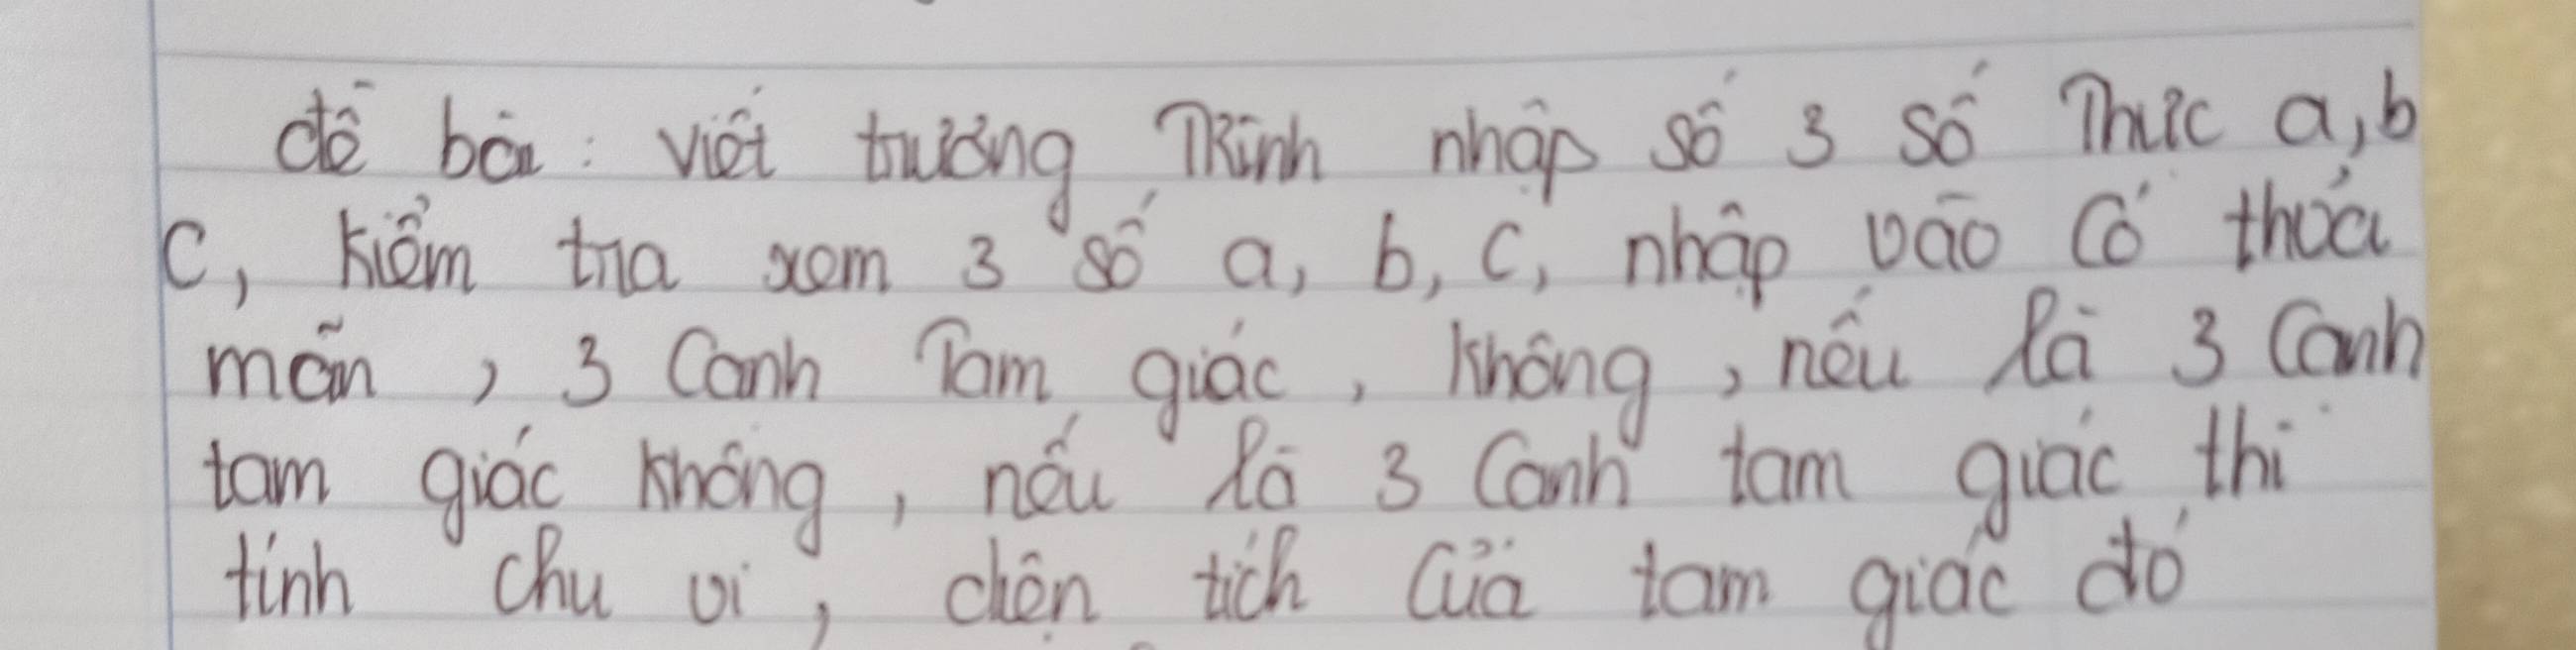 đề bài: viết trường Trình nhập số 3 số Thực a, b
c, kiểm tra xem 3 số a, b, c, nhập vào có thỏa
mãn, 3 Cạnh Tam giác, không, nếu là 3 Cạnh
tam giác không, nếu là 3 Cạnh tam giác thì
tính chu vi, diện tích của tam giác đó